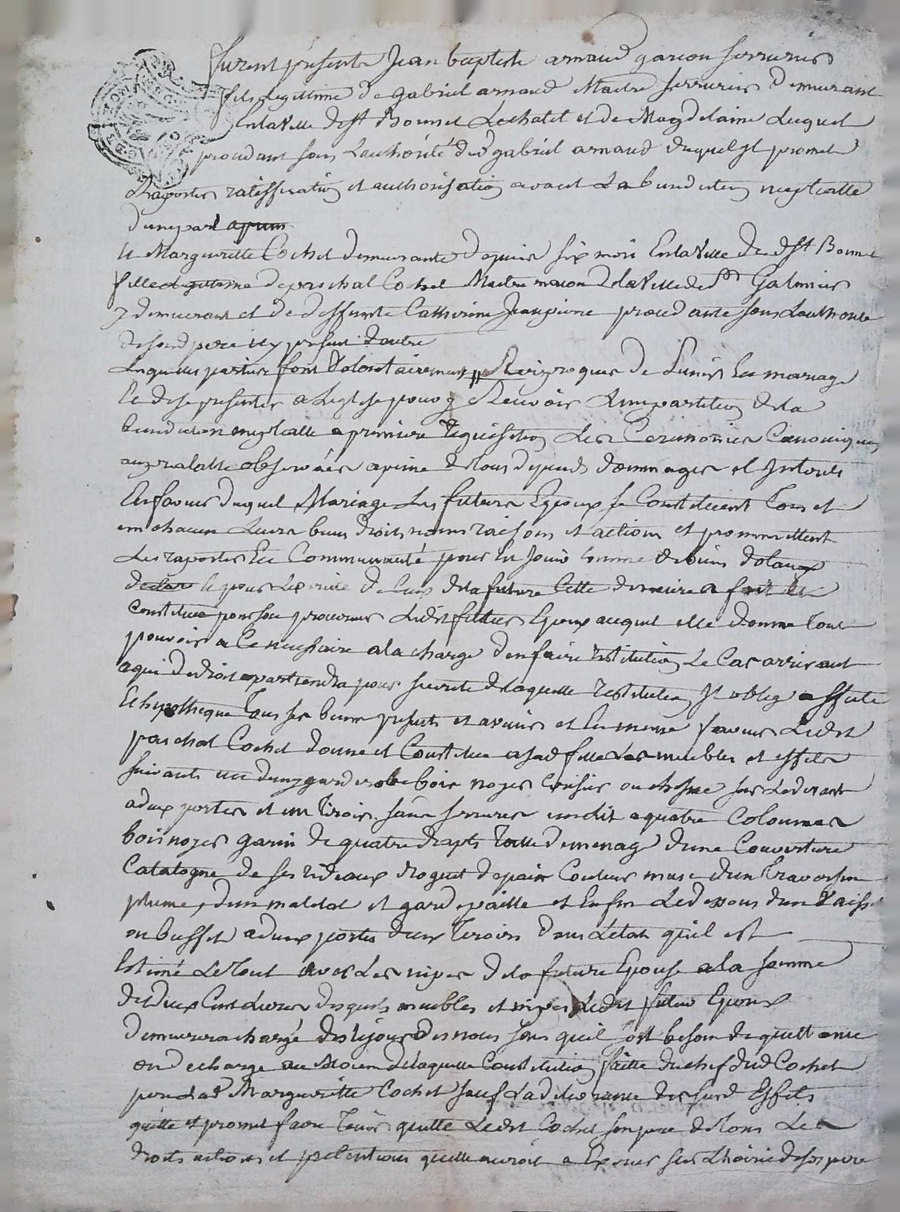 furent présents Jean baptiste arnaud garcon serrurier
fils legittime de gabriel arnaud Maitre serrurier demeurant
En la Ville de st Bonnet Lechatel et de Magdelaine Luquet
procedant sous Lauthorité dud gabriel arnaud duquel Jl promet
Raporter rattiffication et authorisation avant La benediction nuptialle
dunepart
Et Margueritte Cochet demeurante depuis six mois En la Ville de dst Bonnet
fille legitteme de paschal Cochet Maitre de la Ville de st Galmier
y demeurant et de deffunte Catherine procedante sous Lauthorité
de sond pere icy present dautre
Lesquelles parties font Volontairement Reciproques de Sunir En mariage
Et de se presenter a Leglise pour y Recevoir Limpartition de la
benediction nuptialle a premiere Requisition Les Ceremonies Canoniques
au prealable observées a peine de tous depends dommages et Jnterets
En faveur duquel Mariage Les futurs Epoux se Constituent Tous et
un chacun Leurs biens droits noms raisons et actions et promettent
Les raporter En Communauté pour En Jouir Comme de biens
Et pour de Ceux de la future Cette derniere a fait et
Constitué pour son procureur Ledit futur Epoux auquel elle donne tout
pouvoir a Ce necessaire a la charge den faire restitution Le Cas arrivant
a qui de droit apartiendra pour sureté de laquelle restitution Jl oblige affecte
Et hypotheque Tous ses biens presents et avenir et En meme faveur Ledit
paschal Cochet donne et Constitue a sad fille Les meubles et effets
suivants un garderobe bois noyer Cerisier ou chesne sur Le devant
a deux portes et un Tiroir sans serrure un lit a quatre Colonnes
bois noyer garni de quatre draps Toille de menage dune Couverture
Catalogne de ses rideaux Couleur musc dun Traversin
plume, dun matelat et garde paille et Enfin Le dessous dun
ou buffet a deux portes deux Tiroirs dans Letat quil est
Estimé Le Tout avec Les nipes de la future Epouse a la somme
de deux Cent Livres desquels meubles et nipes Ledit futur Epoux
demeurera chargé des Lejour des nous sans quil soit besoin de quittance
ou decharge au Moien de laquelle Constitution faitte du chef dud Cochet
pere Lad Margueritte Cochet sauf La delivrance des surd Effets
quitte et promet faire Tenir quitte Ledit Cochet son pere de tous Les
droits actions et pretentions quelle auroit a Exercer sur Lhoirie de ses pere